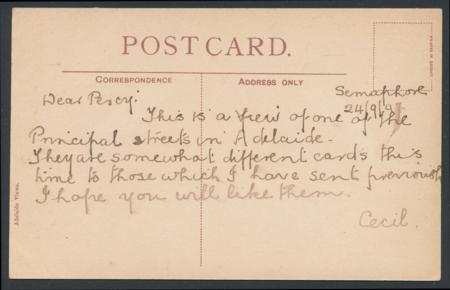 POST CARD.
CORRESPONDENCE ADDRESS ONLY
Semaphore
Dear Percy: 24/9/9
This is a view of one of the
Principal streets in Adelaide.
They are somewhat different cards this
time to those which I have sent previously
I hope you will like them.
Cecil.
Adelaide Views.